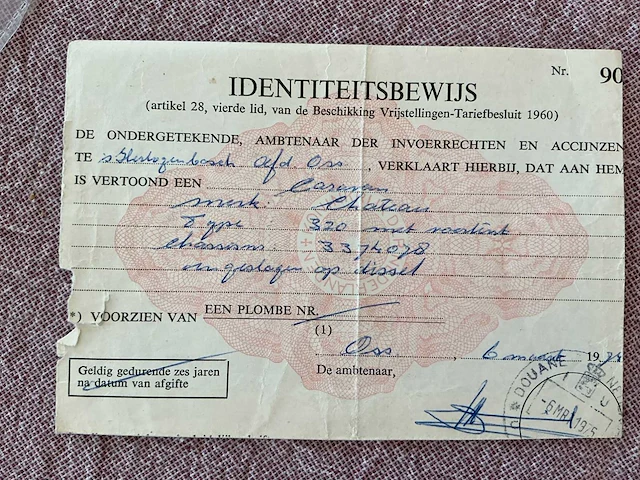 Nr. 90
IDENTITEITSBEWIJS
(artikel 28, vierde lid, van de Beschikking Vrijstellingen-Tariefbesluit 1960)
DE ONDERGETEKENDE, AMBTENAAR DER INVOERRECHTEN EN ACCIJNZEN
TE s'Hertogenbosch Afd Oss, VERKLAART HIERBIJ, DAT AAN HEM
IS VERTOOND EEN Caravan
merk: Chateau
Type 320 met voortent
Chassisnr. 3374078
ingeslagen op dissel
*) VOORZIEN VAN EEN PLOMBE NR.
(1)
Oss, 6 maart 19
De ambtenaar,
Geldig gedurende zes jaren
na datum van afgifte
DOUANE
-6MRT1975